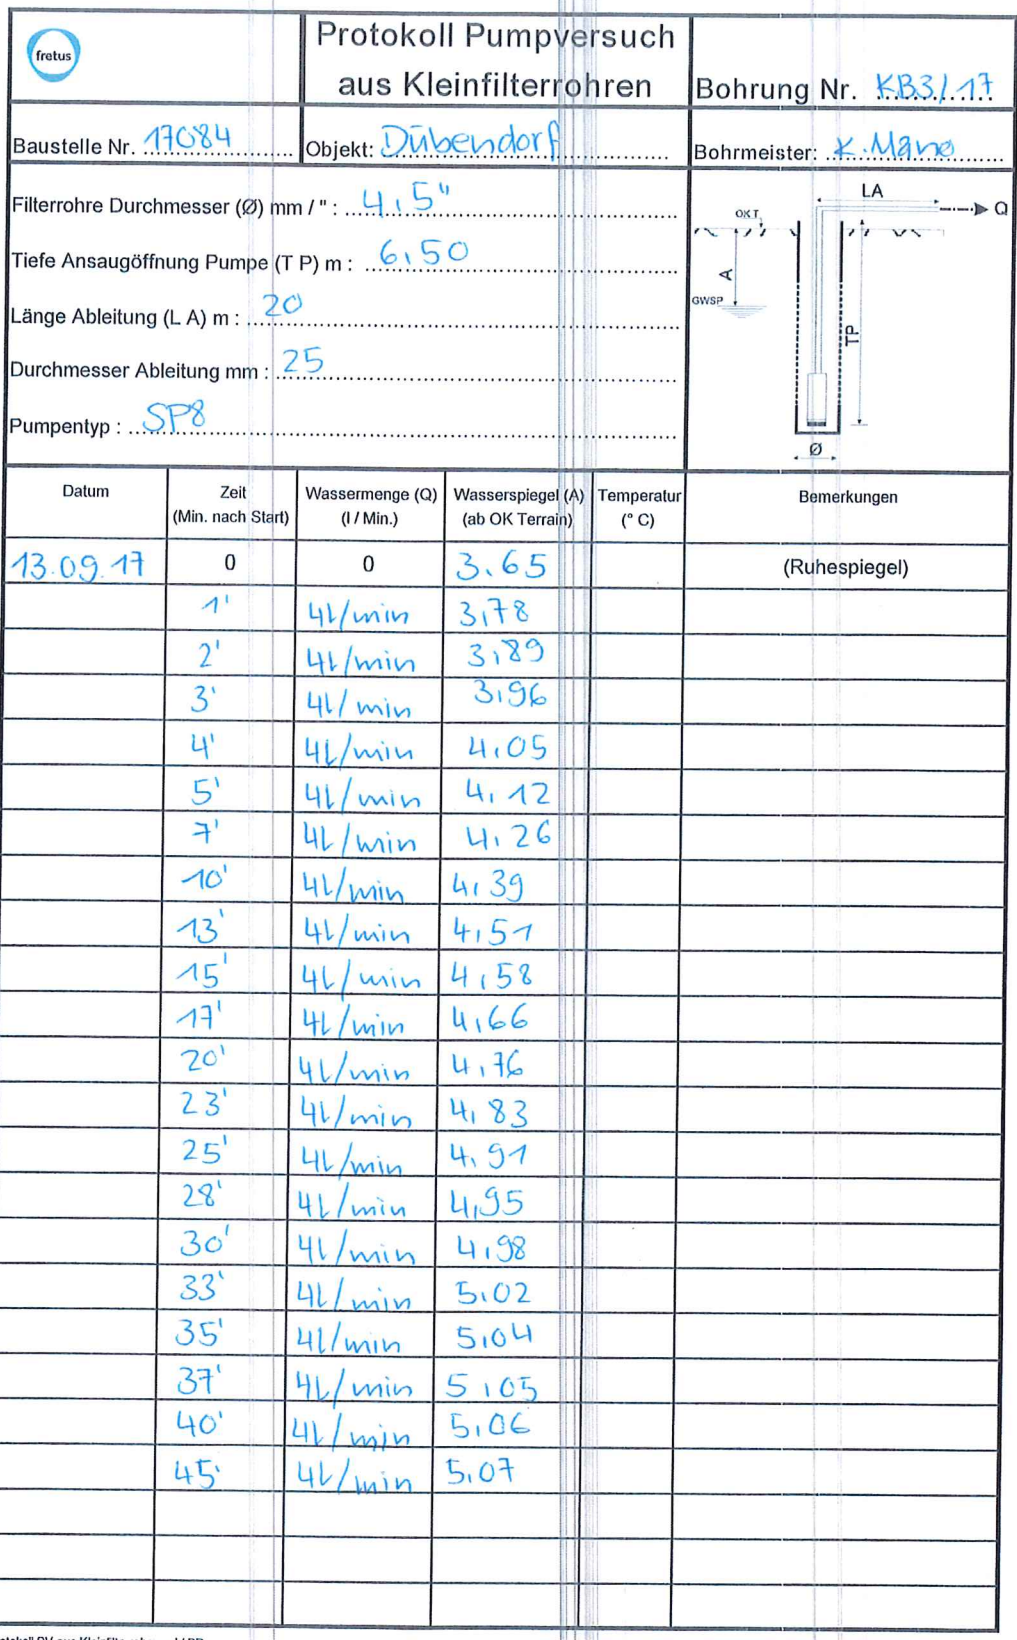 fretus
Protokoll Pumpversuch
aus Kleinfilterrohren
Bohrung Nr. KB3/17
Baustelle Nr. 17084
Objekt: Dübendorf
Bohrmeister: K. Mano
Filterrohre Durchmesser (Ø) mm / " : 4,5"
Tiefe Ansaugöffnung Pumpe (T P) m : 6,50
Länge Ableitung (L A) m : 20
Durchmesser Ableitung mm : 25
Pumpentyp : SP8
LA
Q
OKT
A
GWSP
TP
Ø
Datum Zeit Wassermenge (Q) Wasserspiegel (A) Temperatur Bemerkungen
(Min. nach Start) (l / Min.) (ab OK Terrain) (° C)
13.09.17 0 0 3.65 (Ruhespiegel)
1' 4l/min 3,78
2' 4l/min 3,89
3' 4l/min 3,96
4' 4l/min 4,05
5' 4l/min 4,12
7' 4l/min 4,26
10' 4l/min 4,39
13' 4l/min 4,51
15' 4l/min 4,58
17' 4l/min 4,66
20' 4l/min 4,76
23' 4l/min 4,83
25' 4l/min 4,91
28' 4l/min 4,95
30' 4l/min 4,98
33' 4l/min 5,02
35' 4l/min 5,04
37' 4l/min 5,05
40' 4l/min 5,06
45' 4l/min 5,07